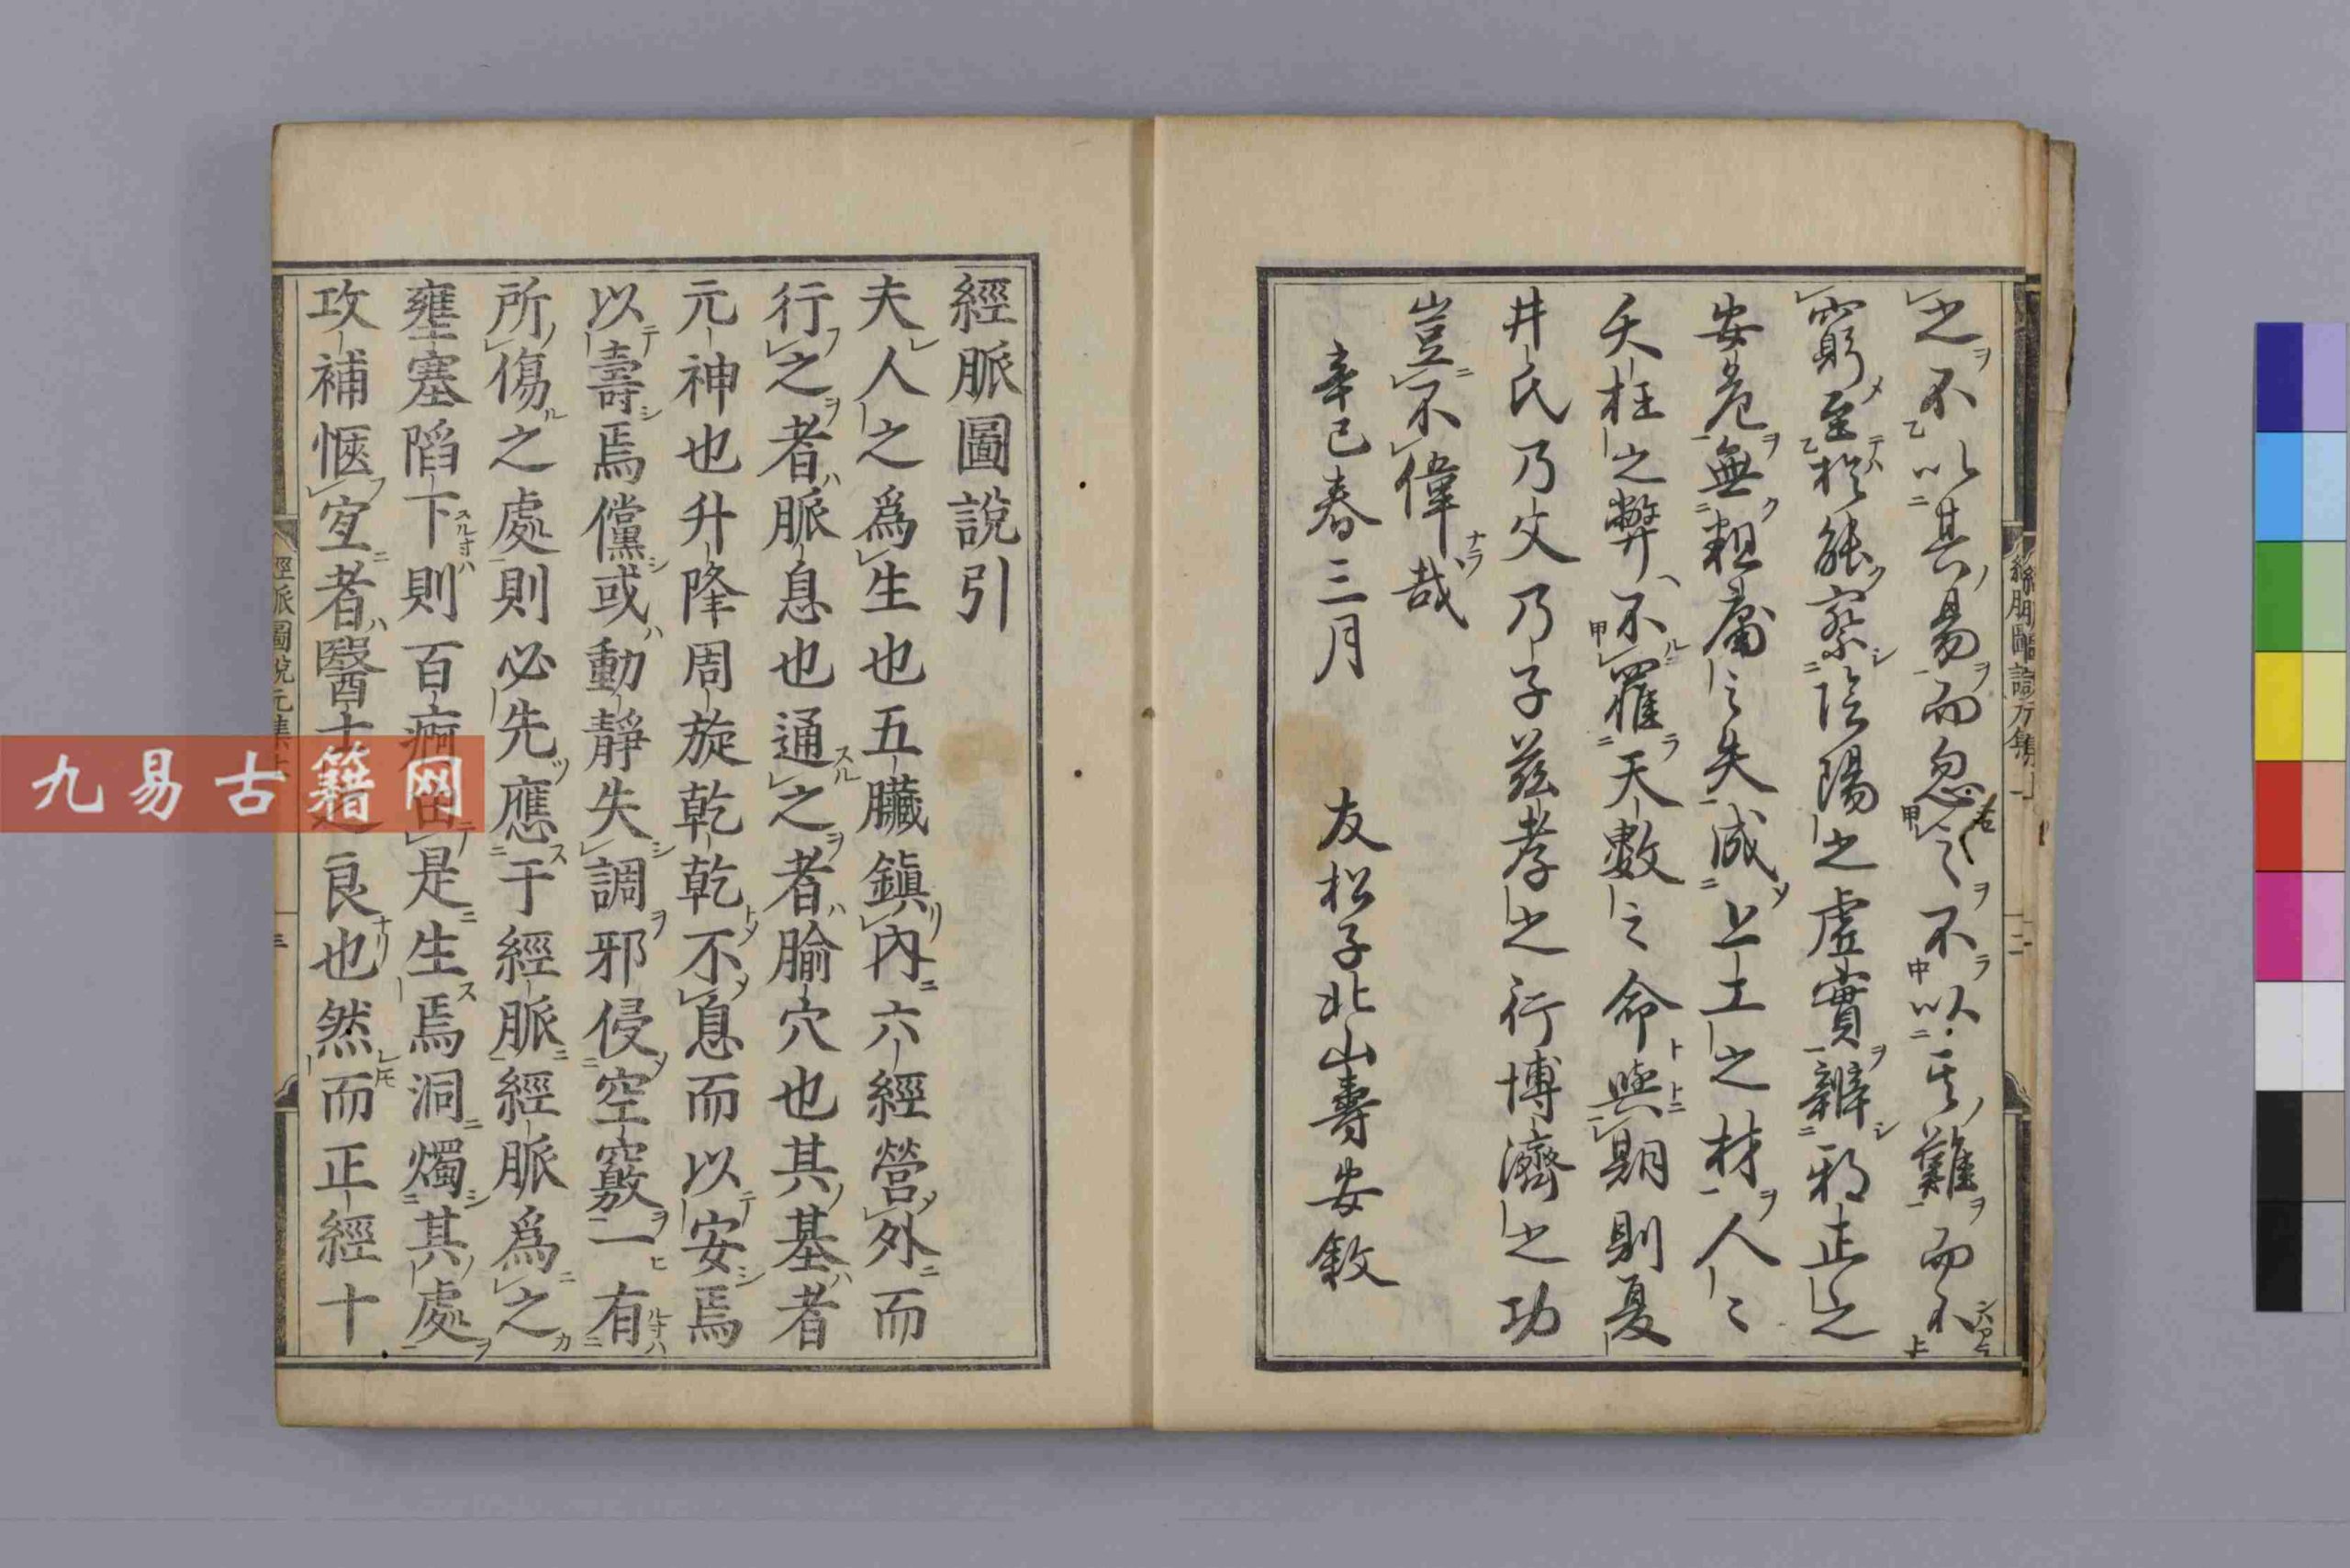 之不以其易而忽之不以其難而不
窮至於能察陰陽之虛實辨邪正之
安危無粗庸之失成上工之材人之
夭枉之弊不罹天數之命與期則夏
井氏乃父乃子茲孝之行博濟之功
豈不偉哉
辛巳春三月 友松子北山壽安敘
經脈圖說引
夫人之為生也五臟鎮內六經營外而
行之者脈息也通之者腧穴也其基者
元神也升降周旋乾乾不息而以安焉
以壽焉儻或動靜失調邪侵空竅一有
所傷之處則必先應于經脈經脈為之
壅塞陷下則百痾由是生焉洞燭其處
攻補愜宜者醫之良也然而正經十
經脈圖說元集
三
二
九易古籍网